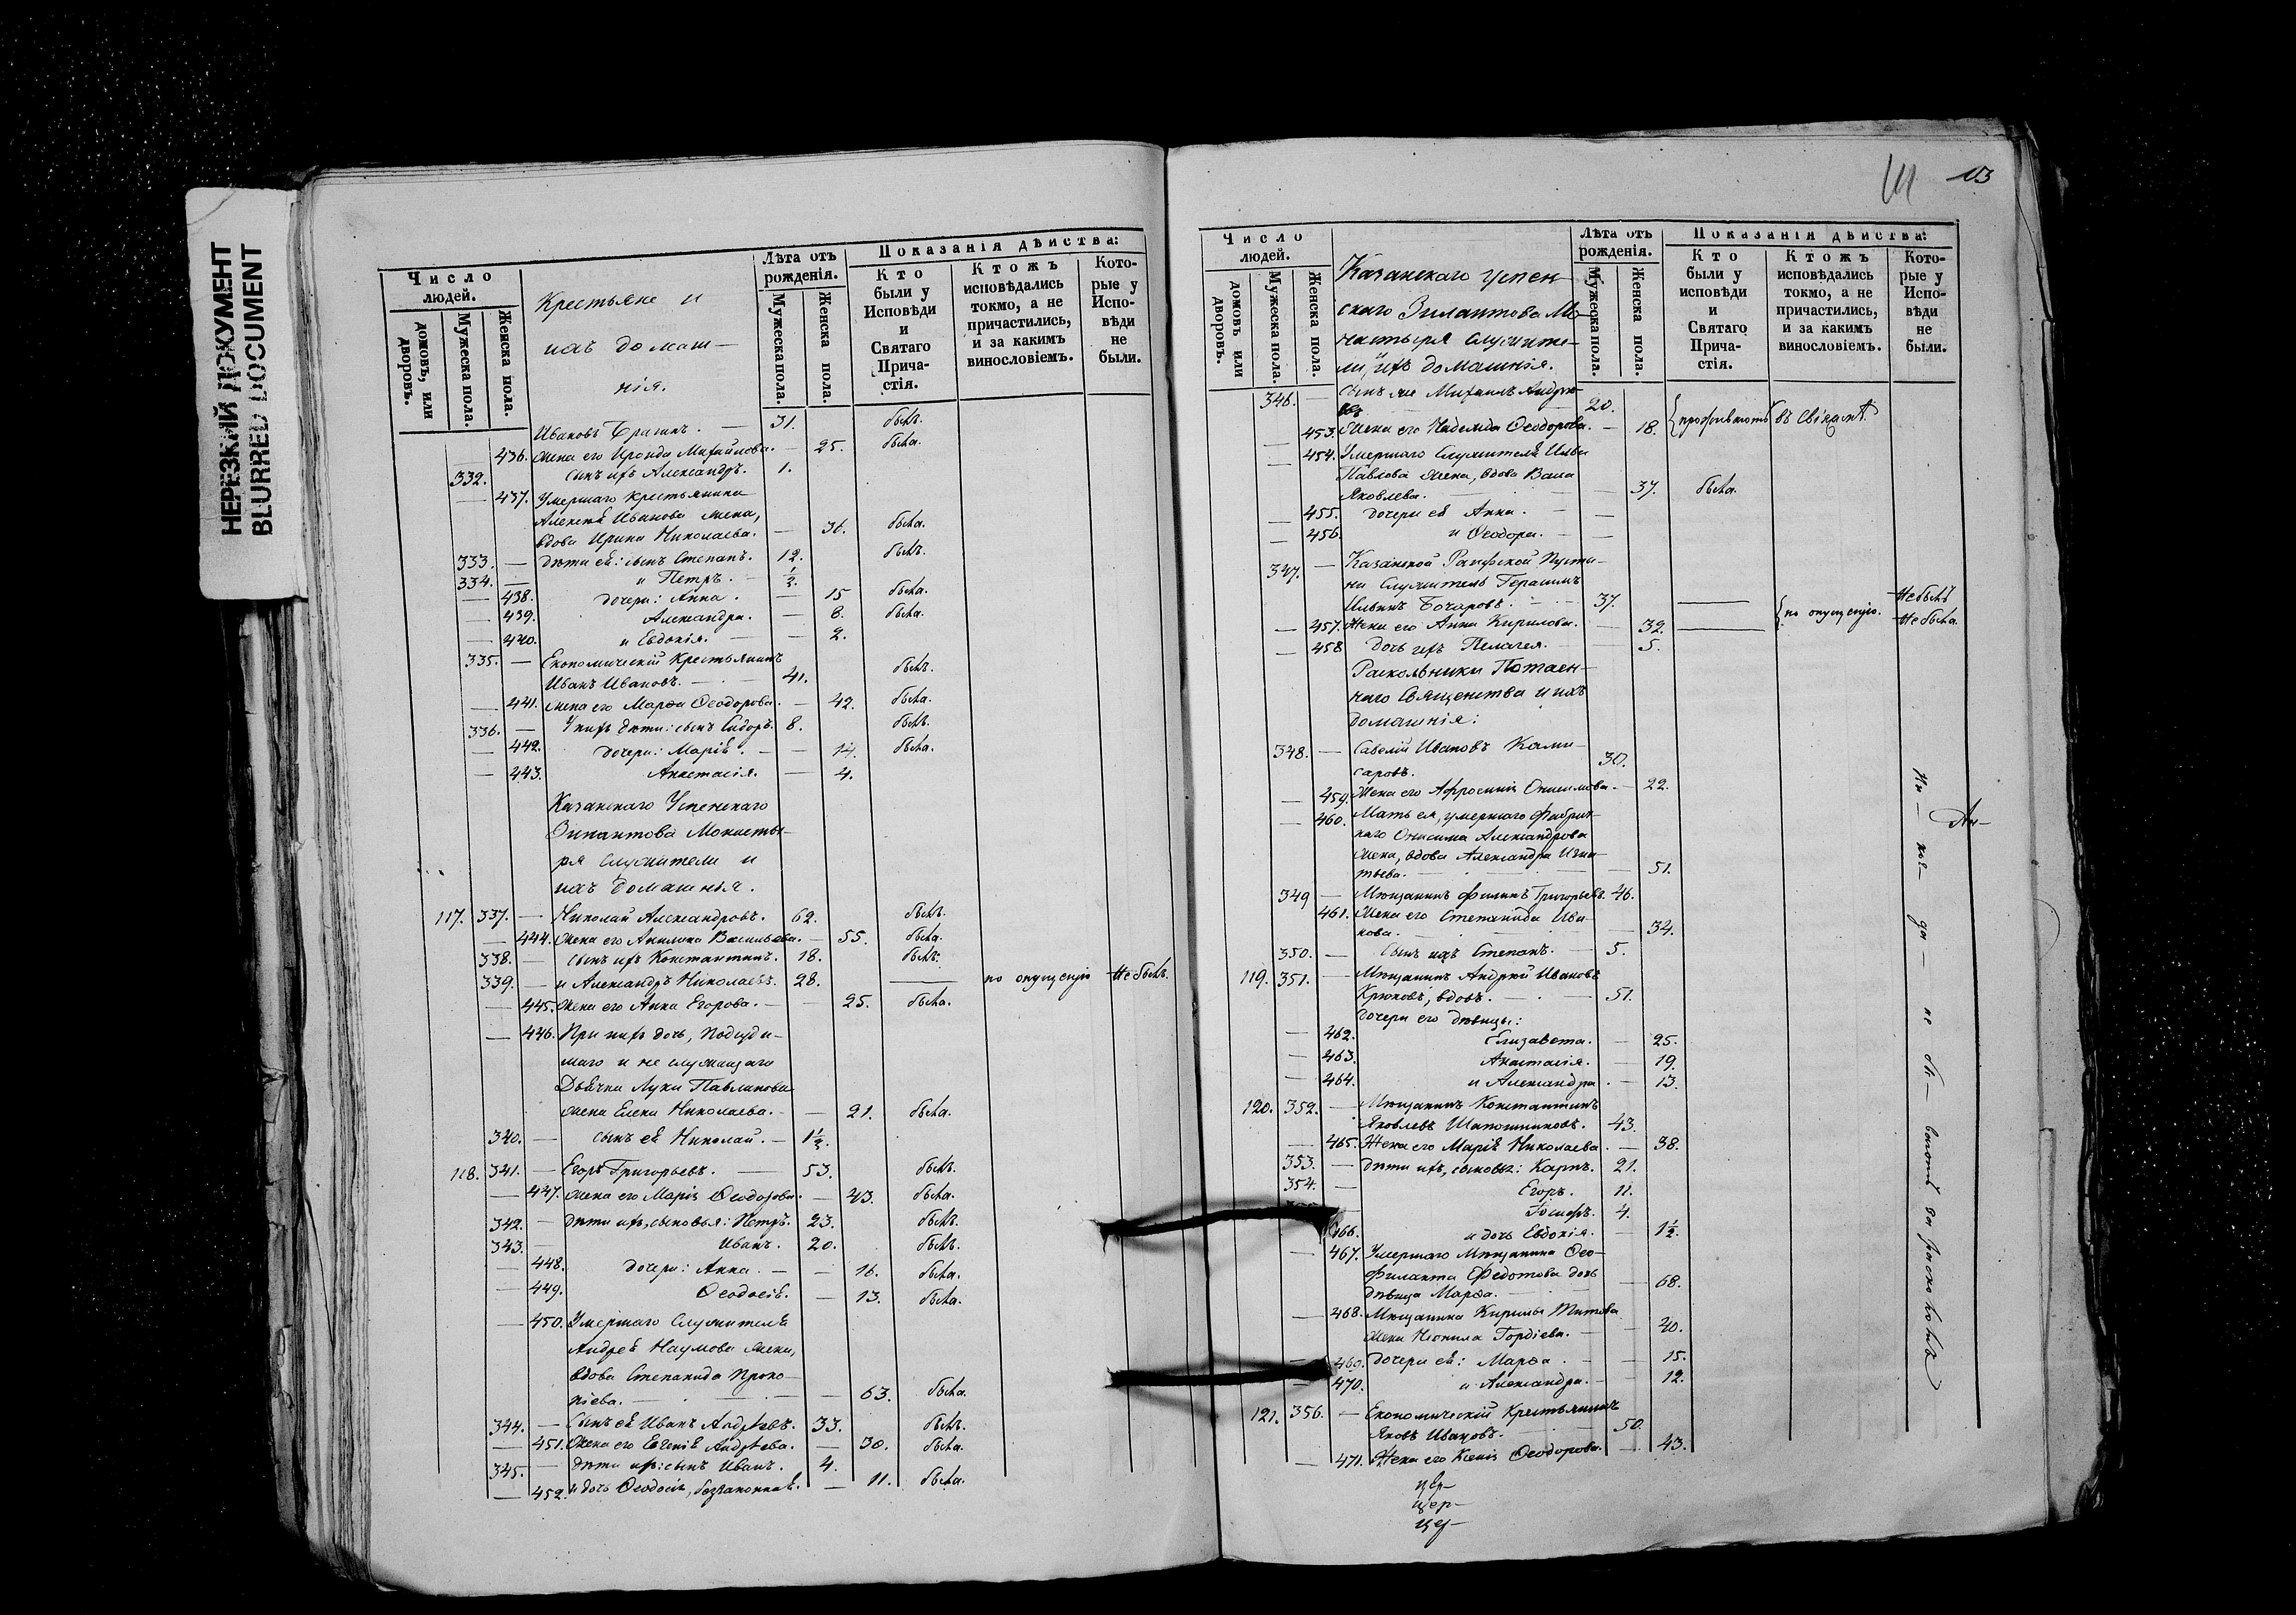 НЕРЕЗКИЙ ДОКУМЕНТ
BLURRED DOCUMENT
Число людей.
домовъ, или дворовъ.
Мужеска пола.
Женска пола.
Крестьяне и
ихъ домаш-
нія.
Лѣта отъ рожденія.
Мужеска пола.
Женска пола.
Показанія дѣйства:
Кто были у Исповѣди и Святаго Причастія.
Ктожъ исповѣдались токмо, а не причастились, и за какимъ винословіемъ.
Которые у Исповѣди не были.
Ивановъ 31. былъ.
436. жена его Ираида Михайлова. — 25. была.
332. сынъ ихъ Александръ. 1.
— 437. Умершаго крестьянина
Алексѣя Иванова жена,
вдова Ирина Николаева. — 36. была.
333. — дѣти ея: сынъ Степанъ. 12. былъ.
334. — и Петръ. — ½.
— 438. дочери: Анна. — 15 была.
— 439. Александра. — 8. была.
— 440. и Евдокія. — 2.
335. — Економическій Крестьянинъ
Иванъ Ивановъ. — 41. былъ.
— 441. жена его Марѳа Ѳеодорова. — 42. была.
336. — У нихъ дѣти: сынъ Сидоръ. 8. былъ.
— 442. дочери: Марія. — 14. была.
— 443. Анастасія. — 4.
Казанскаго Успенскаго
Зилантова Монасты-
ря служители и
ихъ домашнія.
117. 337. — Николай Александровъ. 62. былъ.
— 444. жена его Акилина Васильева. — 55. была.
338. — сынъ ихъ Константинъ. 18. былъ.
339. — и Александръ Николаевъ. 28. — по опущенію Не былъ.
— 445. Жена его Анна Егорова. — 25. была.
— 446. При нихъ дочь, Подсуди-
маго и не служащаго
Дьячка Луки Павлинова
жена Елена Николаева. — 21. была.
340. — сынъ ея Николай. — 1½.
118. 341. — Егоръ Григорьевъ. — 53. былъ.
— 447. жена его Марія Ѳеодорова. — 43. была.
342. — дѣти ихъ, сыновья: Петръ. 23. былъ.
343. — Иванъ. 20. былъ.
— 448. дочери: Анна. — 16. была.
— 449. Ѳеодосія. — 13. была.
— 450. Умершаго Служителя
Андрея Наумова жена,
вдова Степанида Проко-
піева. — 63. была.
344. — Сынъ ея Иванъ Андреевъ. 33. былъ.
— 451. Жена его Евгенія Андреева. — 30. была.
345. — дѣти ихъ: сынъ Иванъ. 4.
— 452. и дочь Ѳеодосія, беззаконная. — 11. была.
103
Число людей.
домовъ или дворовъ.
Мужеска пола.
Женска пола.
Казанскаго Успен-
скаго Зилантова Мо-
настыря Служите-
ли, ихъ домашнія.
Лѣта отъ рожденія.
Мужеска пола.
Женска пола.
Показанія дѣйства:
Кто были у исповѣди и Святаго Причастія.
Ктожъ исповѣдались токмо, а не причастились, и за какимъ винословіемъ.
Которые у Исповѣди не были.
346. — Сынъ же Михаилъ Андрее-
въ 20.
453. Жена его Надежда Ѳеодорова. — 18.
— 454. Умершаго Служителя Ильи
Павлова жена, вдова Васса
Яковлева. — 37. была.
— 455. дочери ея Анна. —
— 456. и Ѳеодора. —
347. — Казанской Раифской Пусты-
ни Служитель Герасимъ
Ильинъ Бочаровъ. 37. — по опущенію. Не былъ
— 457. Жена его Анна Кирилова. — 32. — Не была.
— 458 дочь ихъ Пелагея. — 5.
Раскольники Потаен-
наго Священства и ихъ
домашнія:
348. — Савелій Ивановъ Коми-
саровъ. 30.
— 459. Жена его Афросинія Онисимова. — 22.
— 460. Мать ея, умершаго Фабрич-
наго Онисима Александрова
жена, вдова Александра Игна-
тьева. — 51.
349 — Мѣщанинъ Филипъ Григорьевъ. 46.
461. Жена его Степанида Ива-
нова. — 34.
350. — Сынъ ихъ Степанъ. — 5.
119. 351. — Мѣщанинъ Андрей Ивановъ
Крюковъ, вдовъ. — 51.
Дочери его дѣвицы:
— 462. Елизавета. — 25.
— 463. Анастасія. — 19.
— 464. и Александра. — 13.
120. 352. — Мѣщанинъ Константинъ
Яковлевъ Шапошниковъ. 43.
— 465. Жена его Марія Николаева. — 38.
353. — дѣти ихъ, сыновья: Карпъ. 21.
354. — Егоръ. 11.
Іосифъ. 4.
466. и дочь Евдокія. — 1½.
— 467. Умершаго Мѣщанина Ѳео-
филакта Федотова дочь
дѣвица Марѳа. — 68.
— 468. Мѣщанина Кирилы Титова
жена Неонила Гордіева. — 40.
— 469. дочери ея: Марѳа. — 15.
— 470. и Александра. — 12.
121. 356. — Економическій Крестьянинъ
Яковъ Ивановъ. 50.
— 471. Жена его Ксенія Ѳеодорова. — 43.
Ни — ког — да — не бы —
цер-
цер-